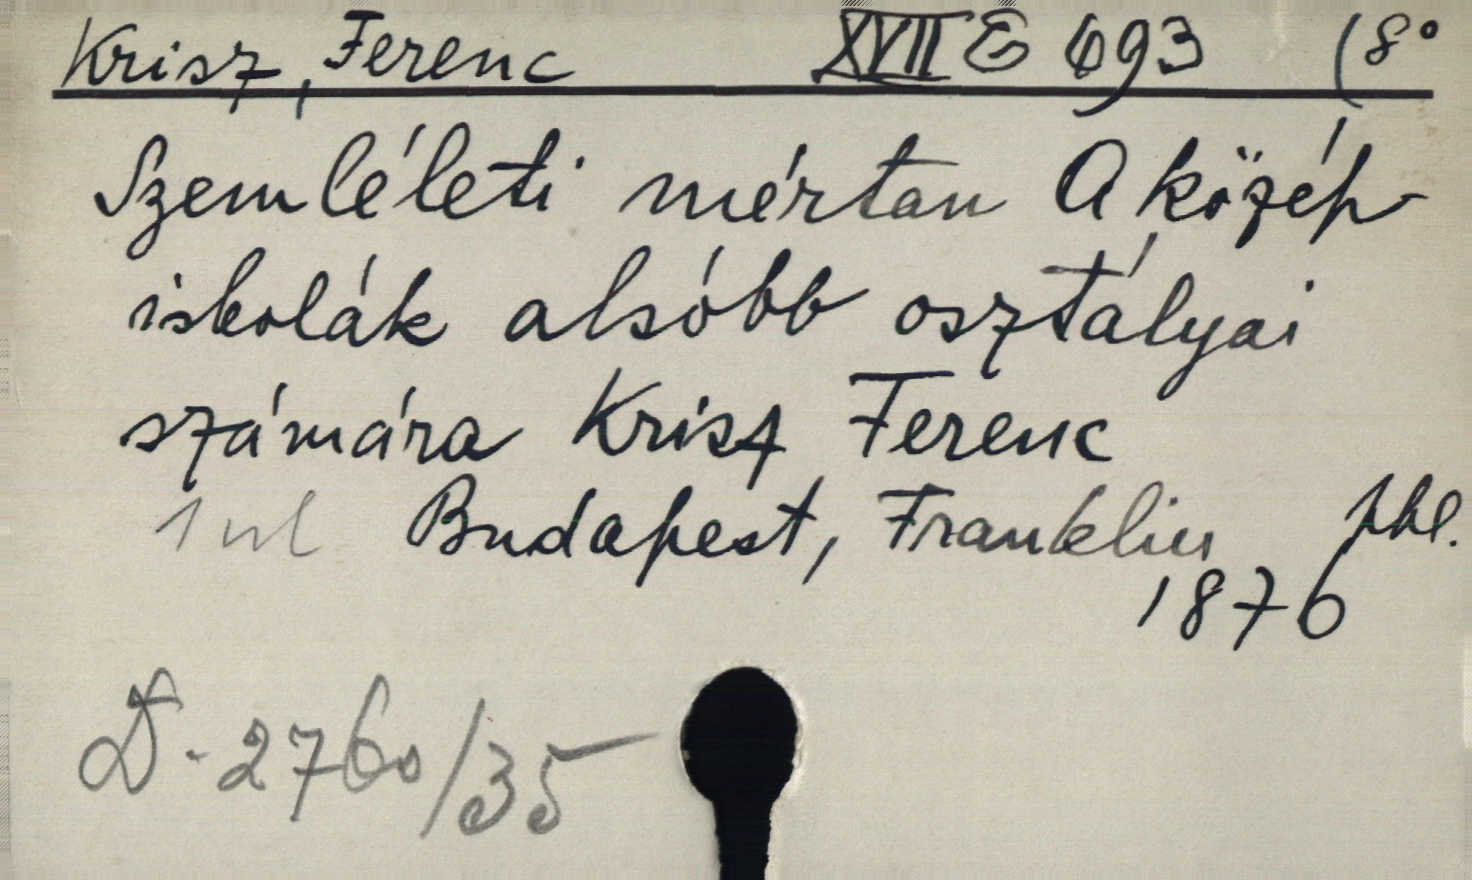 Krisz, Ferenc XVII E 693 (8°
Szemléleti mértan A közép-
iskolák alsóbb osztályai
számára Krisz Ferenc
Budapest, Franklin
1876
D. 2760/35